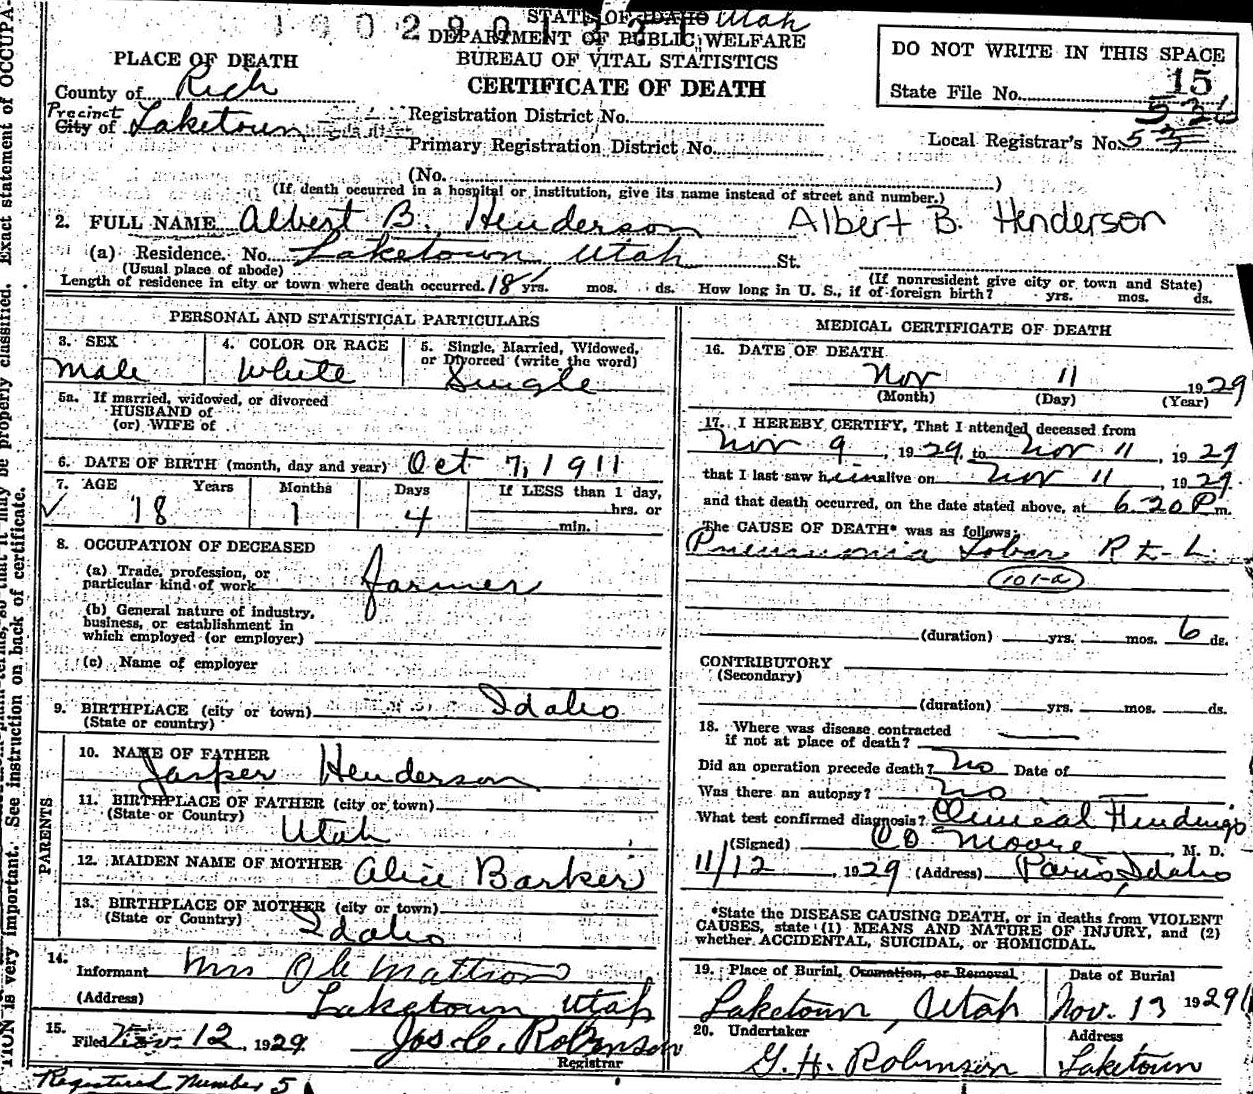 1002901321
STATE OF IDAHO Utah
DEPARTMENT OF PUBLIC WELFARE
BUREAU OF VITAL STATISTICS
CERTIFICATE OF DEATH
DO NOT WRITE IN THIS SPACE
15
State File No.
PLACE OF DEATH
County of Rich
Precinct
City of Laketown
Registration District No.
Primary Registration District No.
Local Registrar's No. 5
(No. )
(If death occurred in a hospital or institution, give its name instead of street and number.)
2. FULL NAME Albert B. Henderson Albert B. Henderson
(a) Residence. No. Laketown Utah St.
(Usual place of abode) (If nonresident give city or town and State)
Length of residence in city or town where death occurred. 18 yrs. mos. ds. How long in U. S., if of foreign birth? yrs. mos. ds.
PERSONAL AND STATISTICAL PARTICULARS
3. SEX
Male
4. COLOR OR RACE
White
5. Single, Married, Widowed,
or Divorced (write the word)
Single
5a. If married, widowed, or divorced
HUSBAND of
(or) WIFE of
6. DATE OF BIRTH (month, day and year) Oct 7, 1911
7. AGE Years Months Days If LESS than 1 day,
18 1 4 hrs. or
min.
8. OCCUPATION OF DECEASED
(a) Trade, profession, or
particular kind of work farmer
(b) General nature of industry,
business, or establishment in
which employed (or employer)
(c) Name of employer
9. BIRTHPLACE (city or town) Idaho
(State or country)
PARENTS
10. NAME OF FATHER
Jasper Henderson
11. BIRTHPLACE OF FATHER (city or town)
(State or Country) Utah
12. MAIDEN NAME OF MOTHER Alice Barker
13. BIRTHPLACE OF MOTHER (city or town)
(State or Country) Idaho
14.
Informant Mrs Ole Mattson
(Address) Laketown Utah
15.
Filed Nov. 12, 1929. Jos. C. Robinson
Registrar
Registered Number 5
MEDICAL CERTIFICATE OF DEATH
16. DATE OF DEATH
Nov 11 1929
(Month) (Day) (Year)
17. I HEREBY CERTIFY, That I attended deceased from
Nov 9, 1929, to Nov 11, 1929
that I last saw him alive on Nov 11, 1929.
and that death occurred, on the date stated above, at 6-20 P m.
The CAUSE OF DEATH* was as follows:
Pneumonia Lobar R & L
101-a
(duration) yrs. mos. 6 ds.
CONTRIBUTORY
(Secondary)
(duration) yrs. mos. ds.
18. Where was disease contracted
if not at place of death?
Did an operation precede death? No Date of
Was there an autopsy? No
What test confirmed diagnosis? Clinical Findings
(Signed) Moore, M. D.
11/12, 1929 (Address) Paris, Idaho
*State the DISEASE CAUSING DEATH, or in deaths from VIOLENT
CAUSES, state (1) MEANS AND NATURE OF INJURY, and (2)
whether ACCIDENTAL, SUICIDAL, or HOMICIDAL.
19. Place of Burial, Cremation, or Removal Date of Burial
Laketown, Utah Nov. 13 1929
20. Undertaker Address
G. H. Robinson Laketown
TION is very important. See instruction on back of certificate.
be properly classified. Exact statement of OCCUPA-